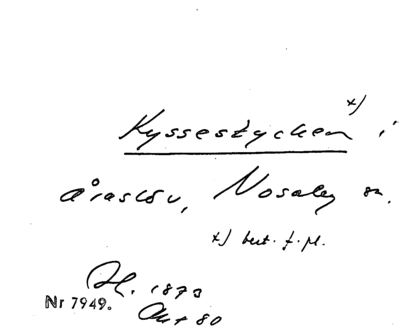 Kyssestycken x) i
Åraslöv, Nosaby sn.
x) best. f. pl.
H. 1873
Nr 7949.
80